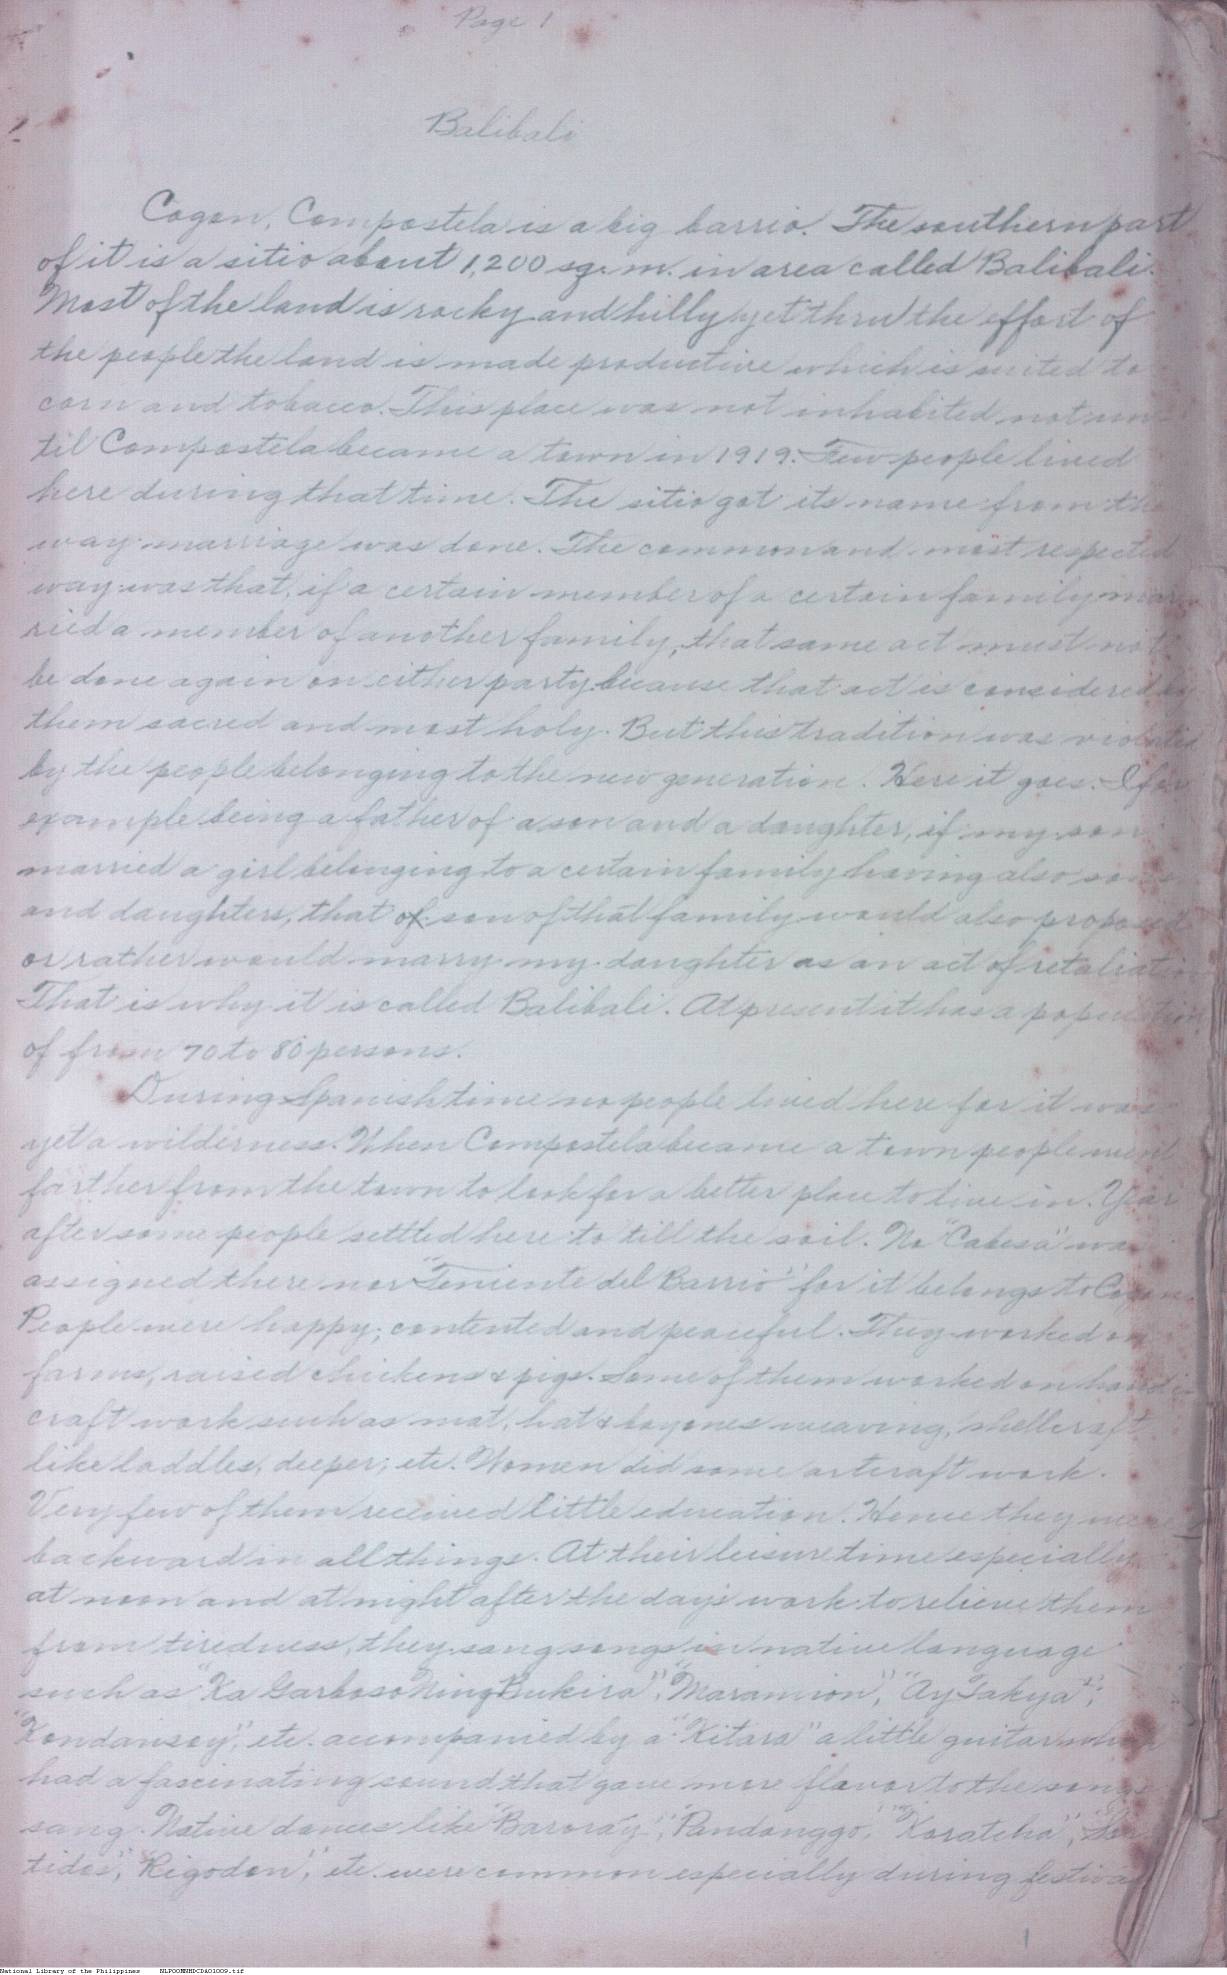 Page 1
Balibali
Cogon, Compostela is a big barrio. The southern part
of it is a sitio about 1,200 sq. m. in area called Balibali.
Most of the land is rocky and hilly yet thru the effort of
the people the land is made productive which is suited to
corn and tobacco. This place was not inhabited not un-
til Compostela became a town in 1919. Few people lived
here during that time. The sitio got its name from the
way marriage was done. The common and most respected
way was that, if a certain member of a certain family mar-
ried a member of another family, that same act must not
be done again on either party because that act is considered by
them sacred and most holy. But this tradition was violated
by the people belonging to the new generation. Here it goes. I for
example being a father of a son and a daughter, if my son
married a girl belonging to a certain family having also sons
and daughters, that of son of that family would also proposed
or rather would marry my daughter as an act of retaliation
That is why it is called Balibali. At present it has a population
of from 70 to 80 persons.
During Spanish time no people lived here for it was
yet a wilderness. When Compostela became a town people went
farther from the town to look for a better place to live in. Year
after some people settled here to till the soil. No "Cabesa" was
assigned there nor "Teniente del Barrio" for it belongs to Cogon.
People were happy, contented and peaceful. They worked on
farms, raised chickens & pigs. Some of them worked on handi-
craft work such as mat, hat & bayones weaving, shellcraft
like laddles, deeper, etc. Women did some artcraft work.
Very few of them received little education. Hence they were
backward in all things. At their leisure time especially
at noon and at night after the day's work to relieve them
from tiredness, they sang songs in native language
such as "Ka Garboso Ning Bukira", "Maramion", "Ay Takya",
"Kondansoy", etc. accompanied by a "Kitara" a little guitar which
had a fascinating sound that gave more flavor to the songs
sang. Native dances like "Baroray", "Pandanggo," "Koratcha",
tidos", "Rigodon", etc. were common especially during festival
1
National Library of the Philippines NLPOOMNHDCDA01009.tif